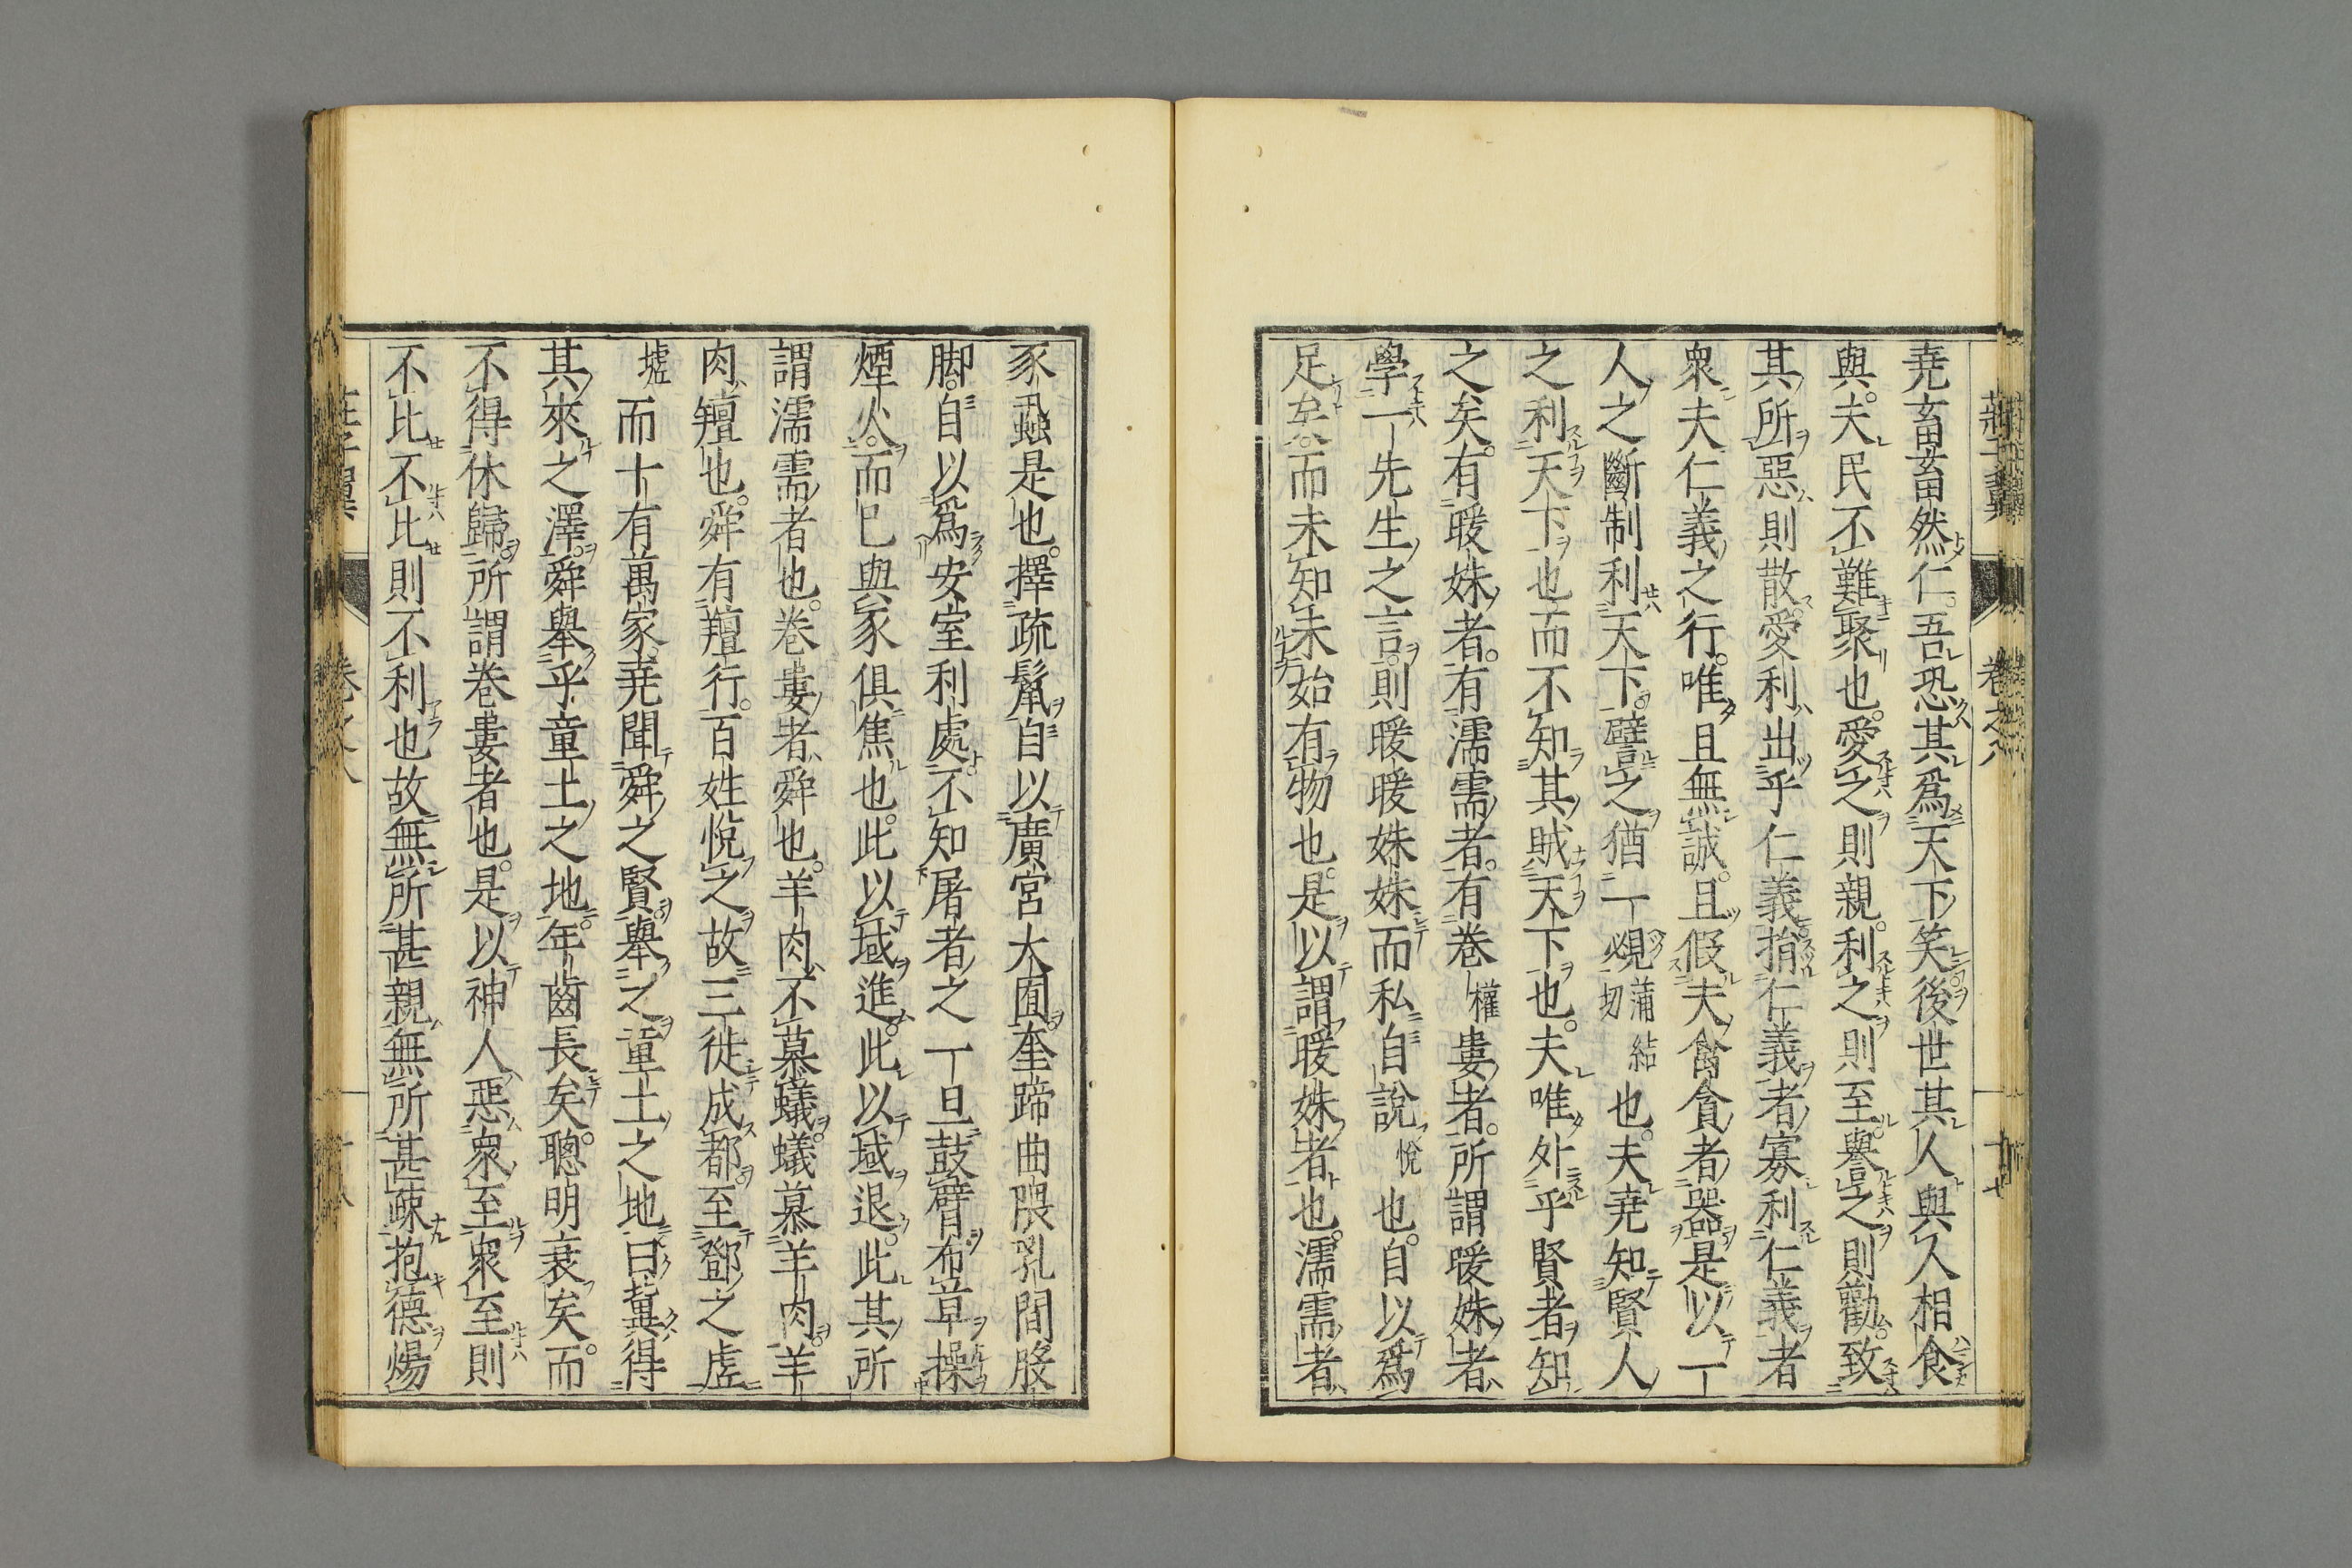 堯畜畜然仁。吾恐其爲天下笑後世其人與人相食
與。夫民不難聚也。愛之則親。利之則至。譽之則勸。致
其所惡則散。愛利出乎仁義。捐仁義者寡利仁義者
衆。夫仁義之行。唯且無誠。且假夫禽貪者器。是以一
人之斷制利天下。譬之猶一覕蒲結切也。夫堯知賢人
之利天下也而不知其賊天下也。夫唯外乎賢者知
之矣。有暖姝者。有濡需者。有卷權婁者。所謂暖姝者
學一先生之言。則暖暖姝姝而私自說悅也。自以爲
足矣。而未知未始有物也。是以謂暖姝者也。濡需者
豕蝨是也。擇疏鬣自以廣宮大囿。奎蹄曲隈乳間股
脚。自以爲安室利處。不知屠者之一旦鼓臂布草操
煙火。而已與豕俱焦也。此以域進。此以域退。此其所
謂濡需者也。卷婁者舜也。羊肉不慕蟻。蟻慕羊肉。羊
肉羶也。舜有羶行。百姓悅之故三徙成都。至鄧之虛
墟而十有萬家。堯聞舜之賢。舉之童土之地曰冀得
其來之澤。舜舉乎童土之地。年齒長矣。聰明衰矣。而
不得休歸。所謂卷婁者也。是以神人惡衆至。衆至則
不比不比則不利也故無所甚親無所甚疎抱德煬
莊子翼 卷之八 十七
莊子翼 卷之八 十八